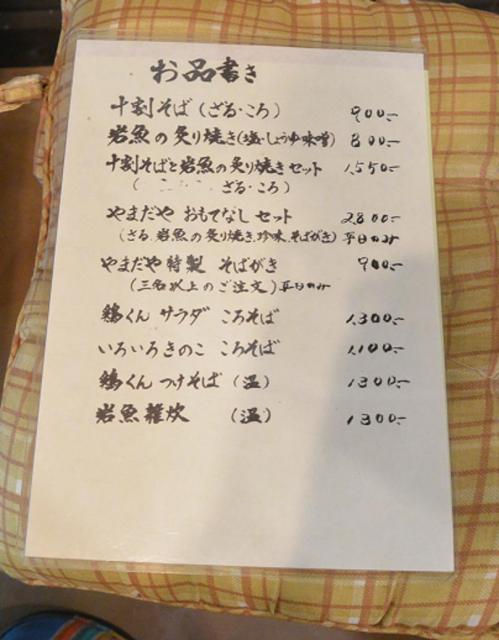 お品書き
十割そば(ざる・ころ) 900.-
岩魚の炙り焼き(塩・しょうゆ・味噌) 800.-
十割そばと岩魚の炙り焼きセット 1,550.-
( ざる・ころ)
やまだや おもてなし セット 2,800.-
(ざる、岩魚の炙り焼き、珍味、そばがき) 平日のみ
やまだや特製 そばがき 900.-
(三名以上のご注文)平日のみ
鶏くん サラダ ころそば 1,300.-
いろいろきのこ ころそば 1,100.-
鶏くん つけそば (温) 1300.-
岩魚雑炊 (温) 1300.-